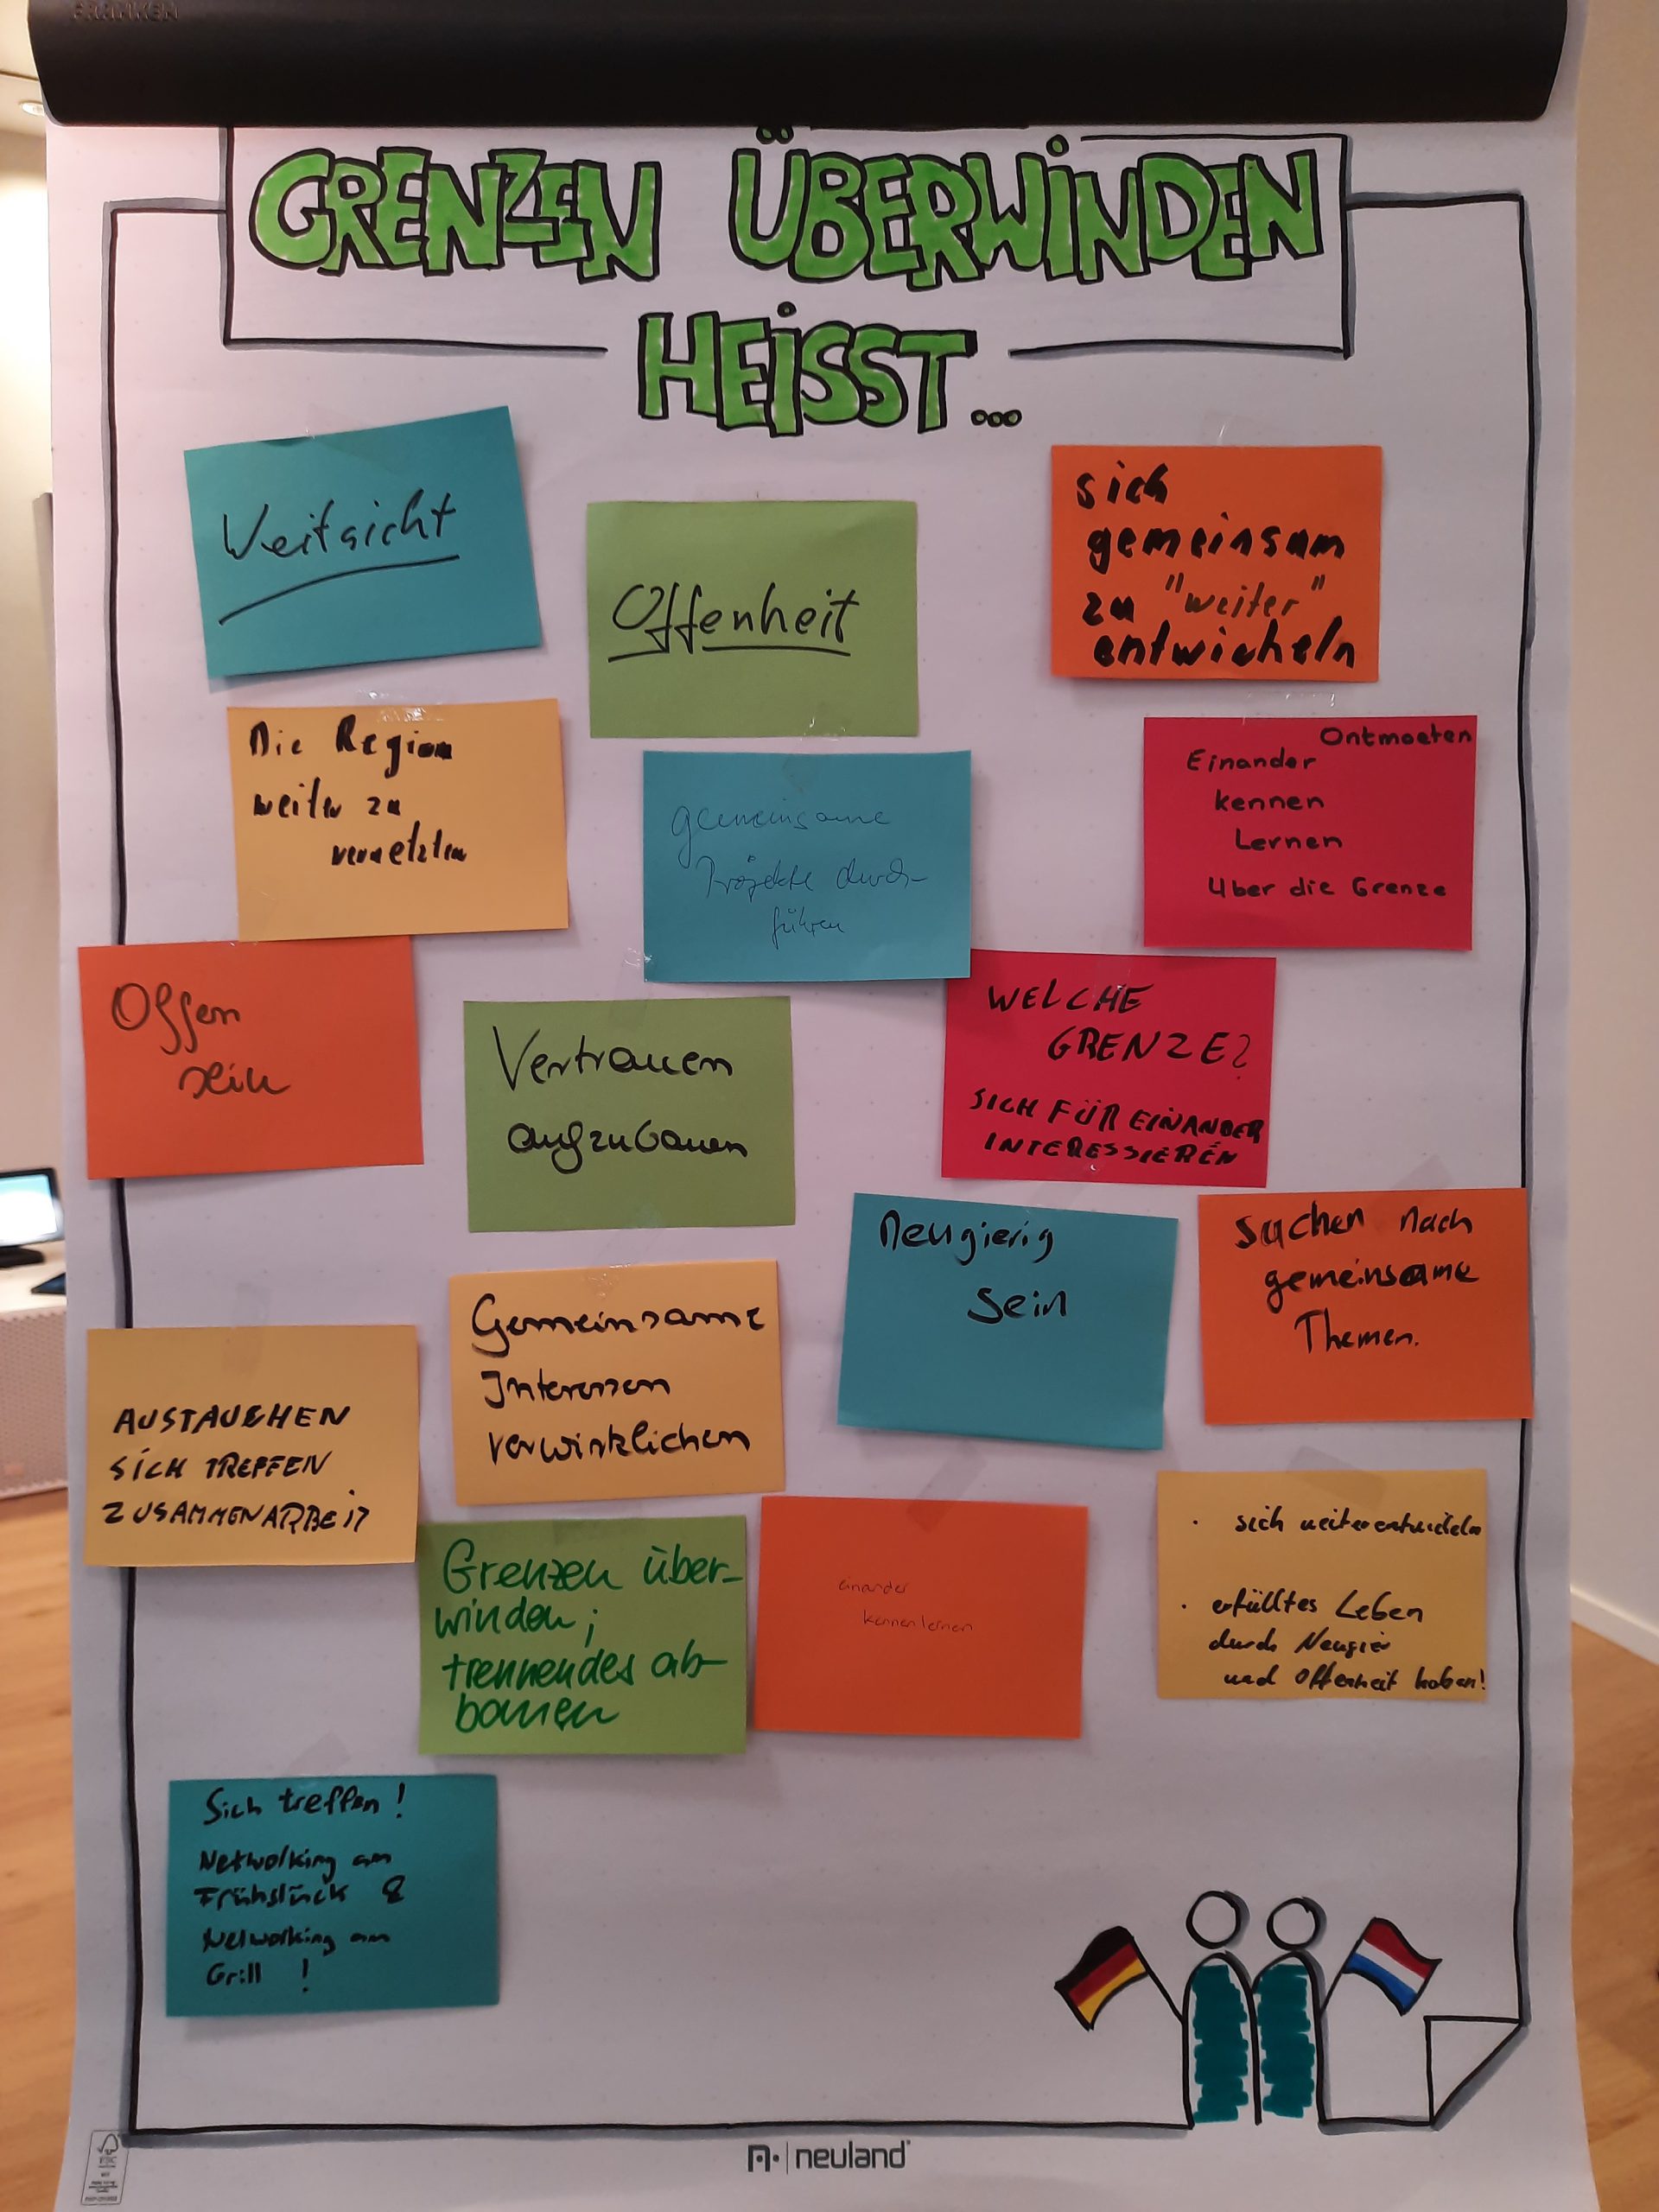 FRANKEN
GRENZEN ÜBERWINDEN
HEISST...
Weitsicht
Offenheit
sich
gemeinsam
zu "weiter"
entwickeln
Die Region
weiter zu
vernetzten
gemeinsame
Projekte durch-
führen
Ontmoeten
Einander
kennen
Lernen
Über die Grenze
Offen
sein
Vertrauen
aufzubauen
WELCHE
GRENZE?
SICH FÜR EINANDER
INTERESSIEREN
Neugierig
sein
Suchen nach
gemeinsame
Themen.
AUSTAUSCHEN
SICH TREFFEN
ZUSAMMENARBEIT
Gemeinsame
Interessen
verwirklichen
Grenzen über-
winden;
trennendes ab-
bauen
einander
kennenlernen
· sich weiterentwickeln
· erfülltes Leben
durch Neugier
und Offenheit haben!
Sich treffen!
Networking am
Frühstück &
Networking am
Grill !
neuland